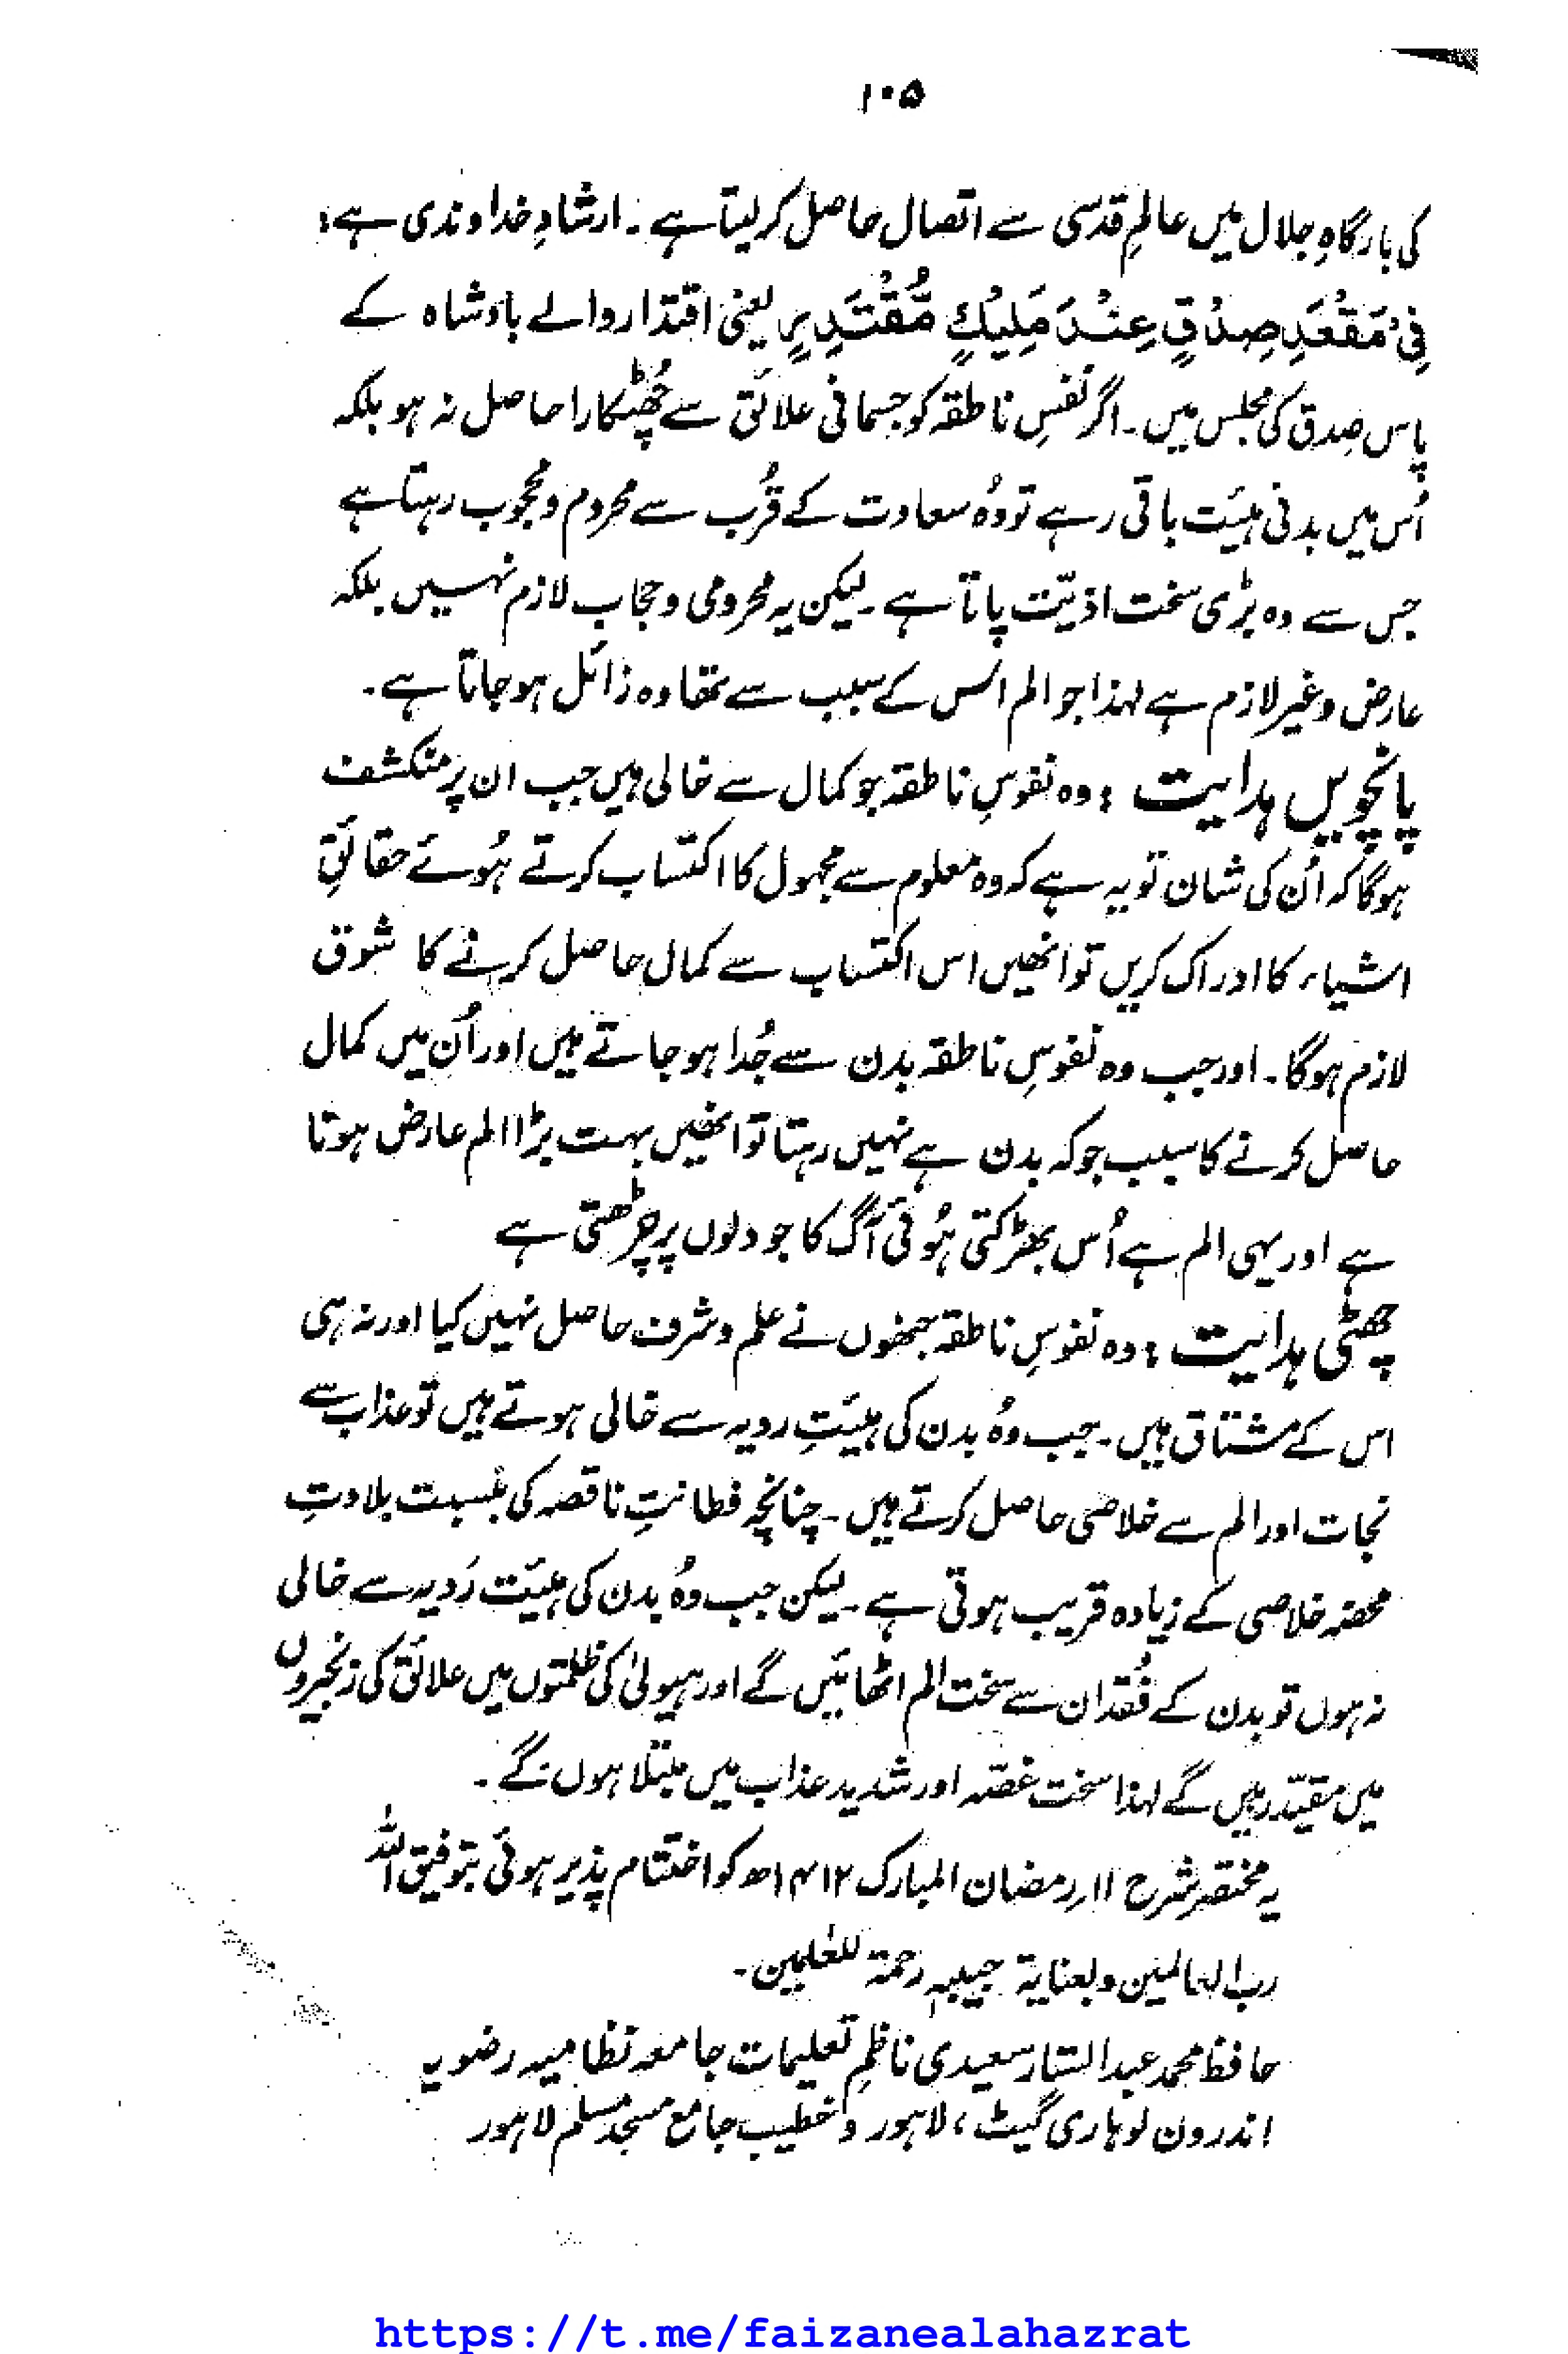 ۱۰۵
کی بارگاہِ جلال میں عالمِ قدسی سے اتصال حاصل کرلیتا ہے۔ ارشادِ خداوندی ہے:
فِیْ مَقْعَدِ صِدْقٍ عِنْدَ مَلِیْکٍ مُّقْتَدِرٍ یعنی اقتدار والے بادشاہ کے
پاس صِدق کی مجلس میں۔ اگر نفسِ ناطقہ کو جسمانی علائق سے چُھٹکارا حاصل نہ ہو بلکہ
اُس میں بدنی ہیئت باقی رہے تو وُہ سعادت کے قُرب سے محروم و محجوب رہتا ہے
جس سے وہ بڑی سخت اذیّت پاتا ہے۔ لیکن یہ محرومی و حجاب لازم نہیں بلکہ
عارض و غیر لازم ہے لہذا جو الم اس کے سبب سے تھا وہ زائل ہو جاتا ہے۔
پانچویں ہدایت : وہ نفوسِ ناطقہ جو کمال سے خالی ہیں جب ان پر منکشف
ہوگا کہ اُن کی شان تو یہ ہے کہ وہ معلوم سے مجہول کا اکتساب کرتے ہُوئے حقائقِ
اشیاء کا ادراک کریں تو انھیں اس اکتساب سے کمال حاصل کرنے کا شوق
لازم ہوگا۔ اور جب وہ نفوسِ ناطقہ بدن سے جُدا ہو جاتے ہیں اور اُن میں کمال
حاصل کرنے کا سبب جو کہ بدن ہے نہیں رہتا تو انھیں بہت بڑا الم عارض ہوتا
ہے اور یہی الم ہے اُس بھڑکتی ہُوئی آگ کا جو دلوں پر چڑھتی ہے
چھٹی ہدایت : وہ نفوسِ ناطقہ جنھوں نے علم و شرف حاصل نہیں کیا اور نہ ہی
اس کے مشتاق ہیں۔ جب وُہ بدن کی ہیئتِ ردیہ سے خالی ہوتے ہیں تو عذاب سے
نجات اور الم سے خلاصی حاصل کرتے ہیں۔ چنانچہ فطانتِ ناقصہ کی بنسبت بلادتِ
محضہ خلاصی کے زیادہ قریب ہوتی ہے۔ لیکن جب وُہ بدن کی ہیئت رَدیہ سے خالی
نہ ہوں تو بدن کے فُقدان سے سخت الم اٹھائیں گے اور ہیولیٰ کی ظلمتوں میں علائق کی زنجیروں
میں مقیّد رہیں گے لہذا سخت غصّہ اور شدید عذاب میں مبتلا ہوں گے۔
یہ مختصر شرح ۱۱ رمضان المبارک ۱۴۱۲ھ کو اختتام پذیر ہوئی بتوفیق اللّٰہ
رب العالمین و بعنایۃ حبیبہٖ رحمۃ للعٰلمین۔
حافظ محمد عبدالستار سعیدی ناظمِ تعلیمات جامعہ نظامیہ رضویہ
اندرون لوہاری گیٹ، لاہور و خطیب جامع مسجد مسلم لاہور
https://t.me/faizanealahazrat